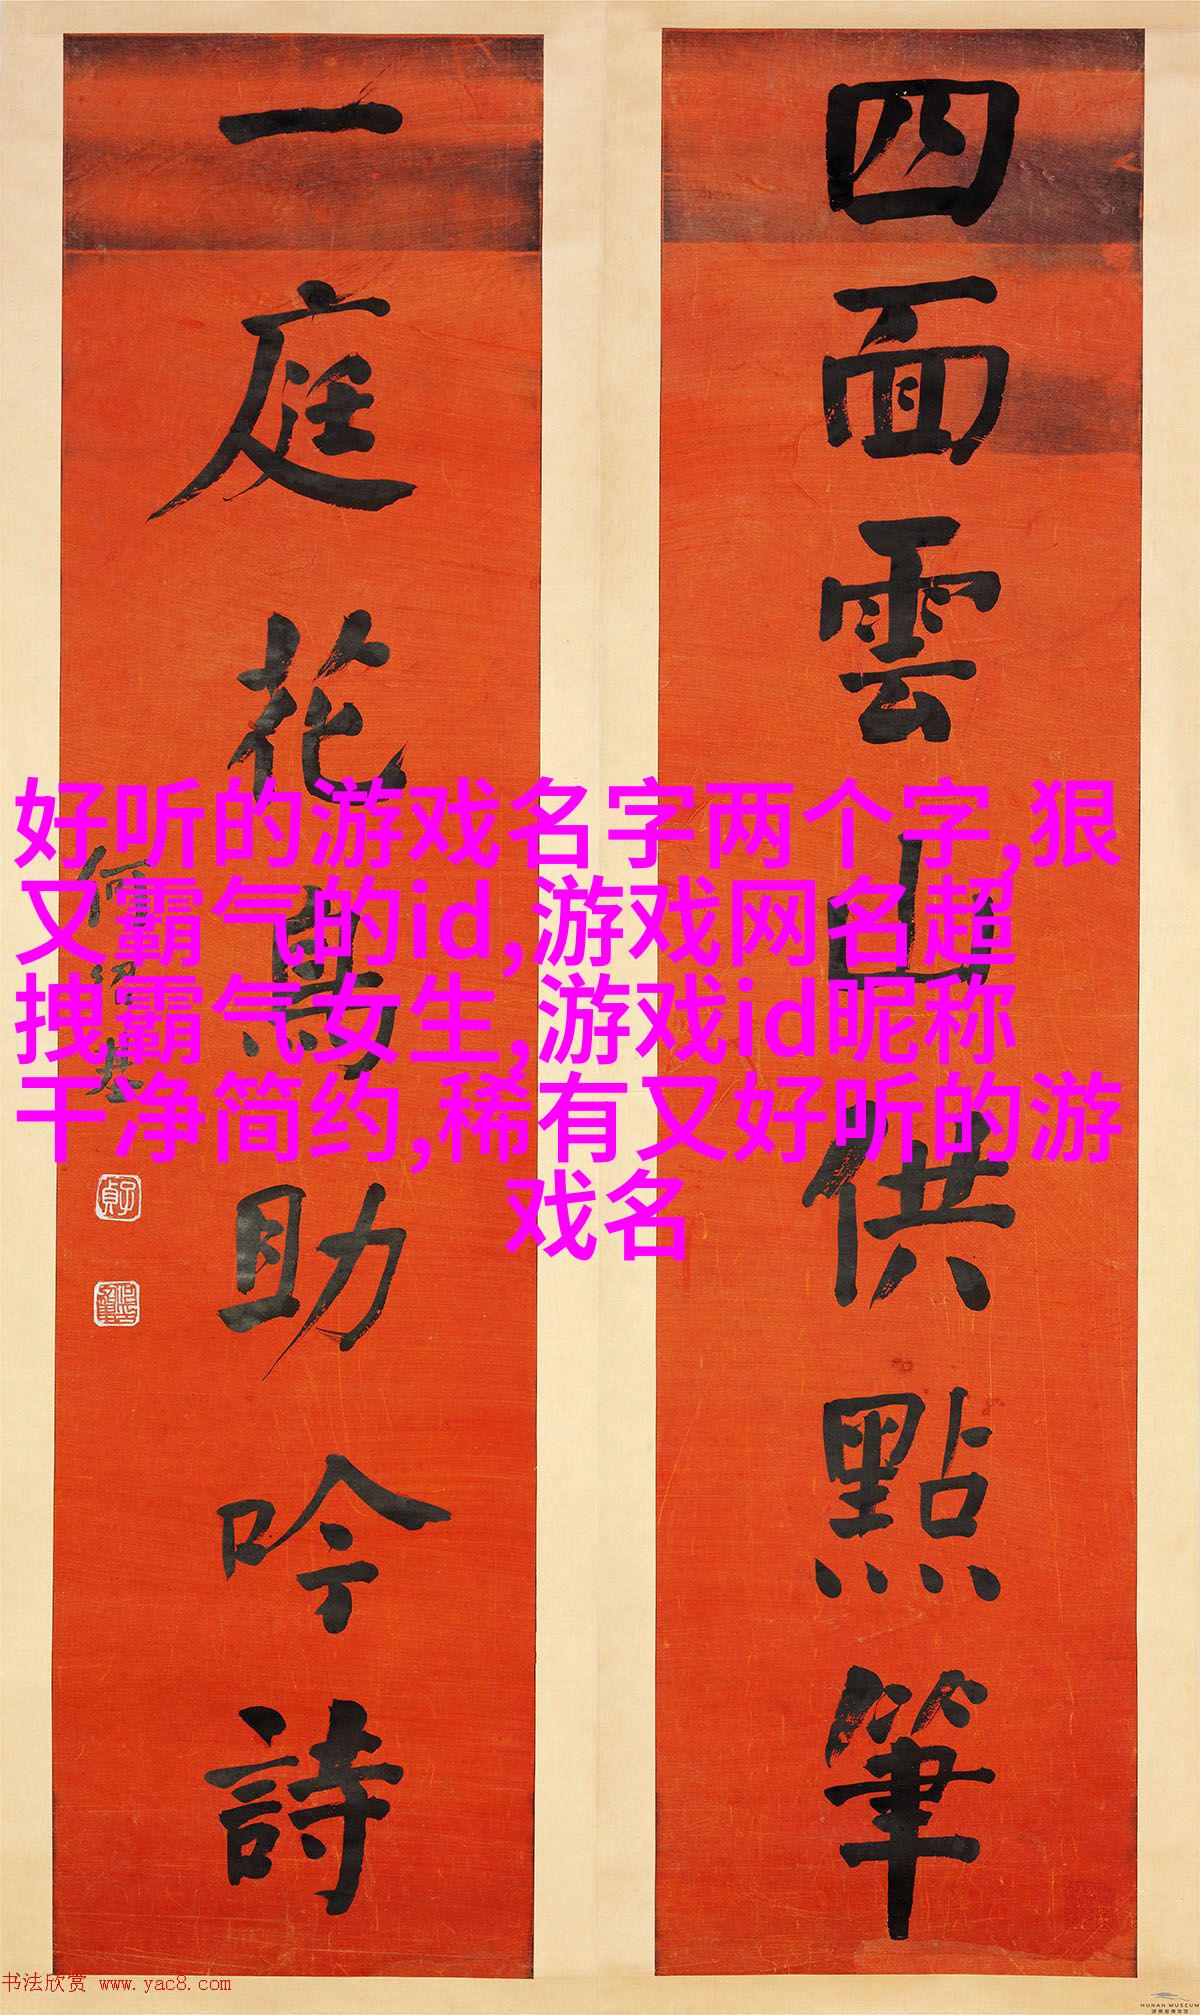 四面雲山供點筆
一庭花鳥助吟詩
何紹基
好听的游戏名字两个字,狠
又霸气的id,游戏网名超
拽霸气女生,游戏id昵称
干净简约,稀有又好听的游
戏名
书法欣赏 www.yac8.com
HUNAN MUSEUM
湖南博物院